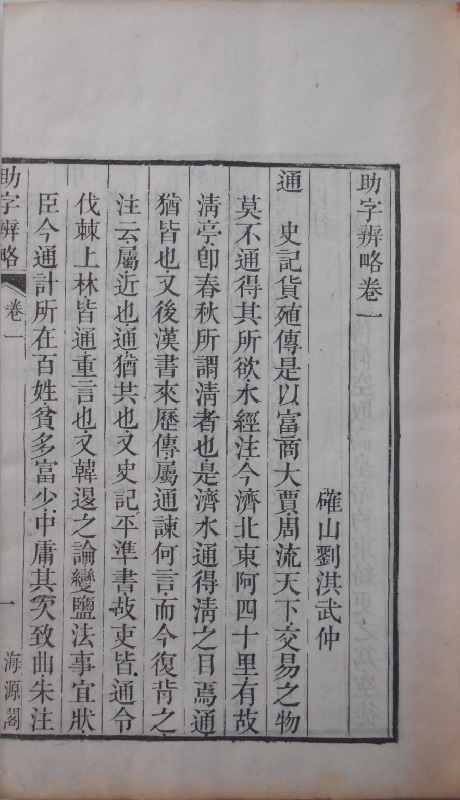 助字辨略卷一
確山劉淇武仲
通　史記貨殖傳是以富商大賈周流天下交易之物
莫不通得其所欲水經注今濟北東阿四十里有故
淸亭卽春秋所謂淸者也是濟水通得淸之目焉通
猶皆也又後漢書來歷傳屬通諫何言而今復背之
注云屬近也通猶共也又史記平準書故吏皆通令
伐棘上林皆通重言也又韓退之論變鹽法事宜狀
臣今通計所在百姓貧多富少中庸其次致曲朱注
助字辨略
卷一
一
海源閣